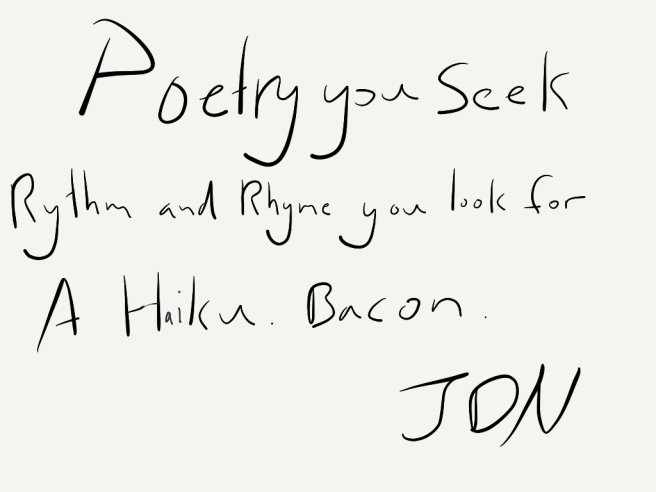 Poetry you Seek
Rythm and Rhyme you look for
A Haiku. Bacon.
JDN